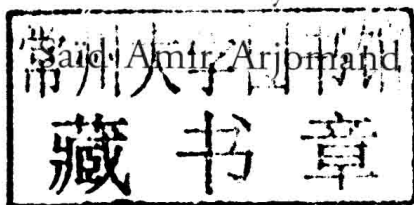 Saïd Amir Arjomand
常州大学图书馆
藏书章